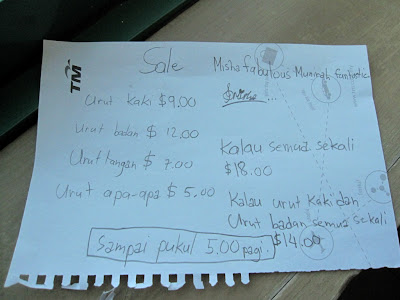 TM
Sale
Urut kaki $9.00
Urut badan $12.00
Urut tangan $7.00
Urut apa-apa $5.00
Misha fabulous Munirah fantastic
Kalau semua sekali
$18.00
Kalau urut kaki dan
Urut badan semua sekali
$14.00
Sampai pukul 5.00 pagi.